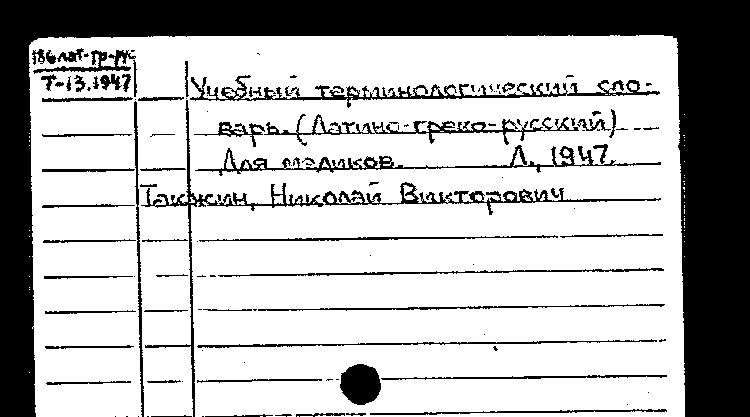 186 лат-гр-рус
Т-13.1947
Учебный терминологический сло-
варь. (Латино-греко-русский)
Для медиков. Л., 1947.
Такжин, Николай Викторович